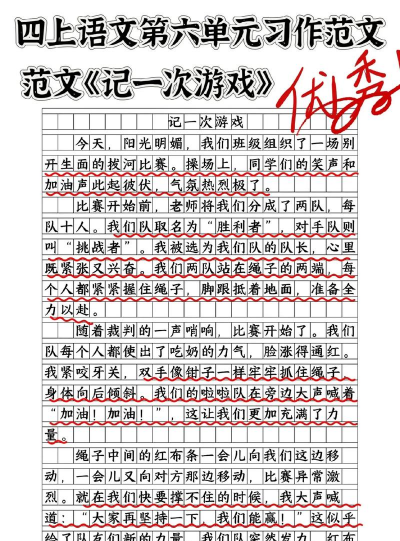 四上语文第六单元习作范文
范文《记一次游戏》
优秀
记一次游戏
今天，阳光明媚，我们班级组织了一场别
开生面的拔河比赛。操场上，同学们的笑声和
加油声此起彼伏，气氛热烈极了。
比赛开始前，老师将我们分成了两队，每
队十人。我们队取名为“胜利者”，对手队则
叫“挑战者”。我被选为我们队的队长，心里
既紧张又兴奋。我们两队站在绳子的两端，每
个人都紧紧握住绳子，脚跟抵着地面，准备全
力以赴。
随着裁判的一声哨响，比赛开始了。我们
队每个人都使出了吃奶的力气，脸涨得通红。
我紧咬牙关，双手像钳子一样牢牢抓住绳子，
身体向后倾斜。我们的啦啦队在旁边大声喊着
“加油！加油！”，这让我们更加充满了力
量。
绳子中间的红布条一会儿向我们这边移
动，一会儿又向对方那边移动，比赛异常激
烈。就在我们快要撑不住的时候，我大声喊
道：“大家再坚持一下，我们能赢！”这似乎
给了队友们新的力量，我们队突然发力，红布